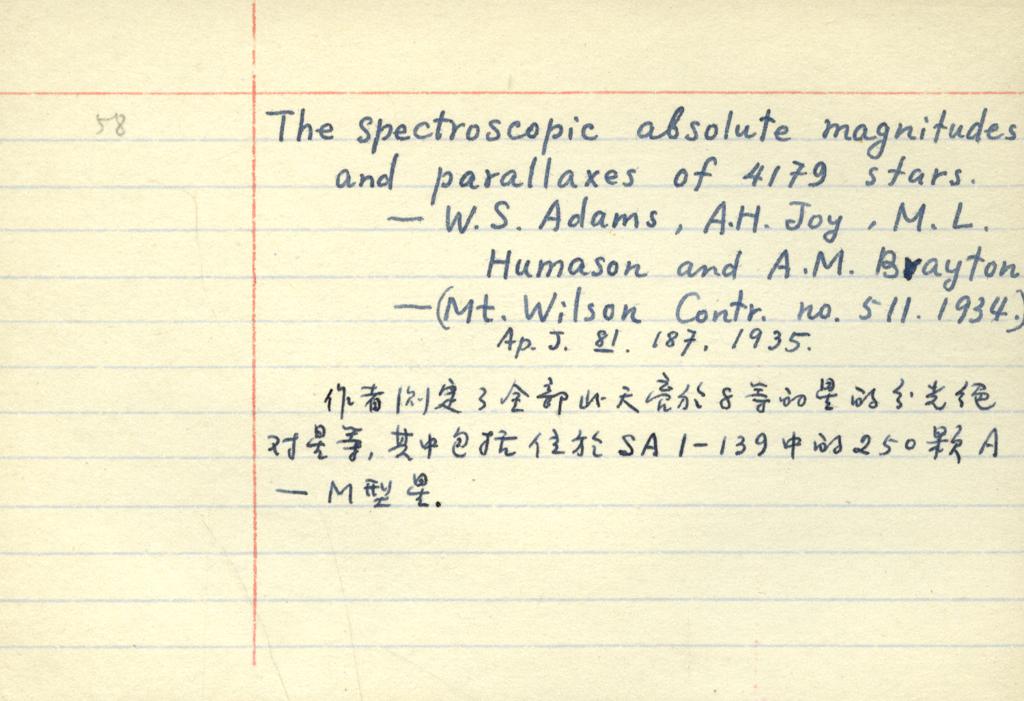 58
The spectroscopic absolute magnitudes
and parallaxes of 4179 stars.
— W.S. Adams, A.H. Joy, M.L.
Humason and A.M. Brayton
—(Mt. Wilson Contr. no. 511. 1934.)
Ap. J. 81. 187. 1935.
作者测定了全部北天亮於8等的星的分光绝
对星等,其中包括位於SA 1-139中的250颗A
— M型星.